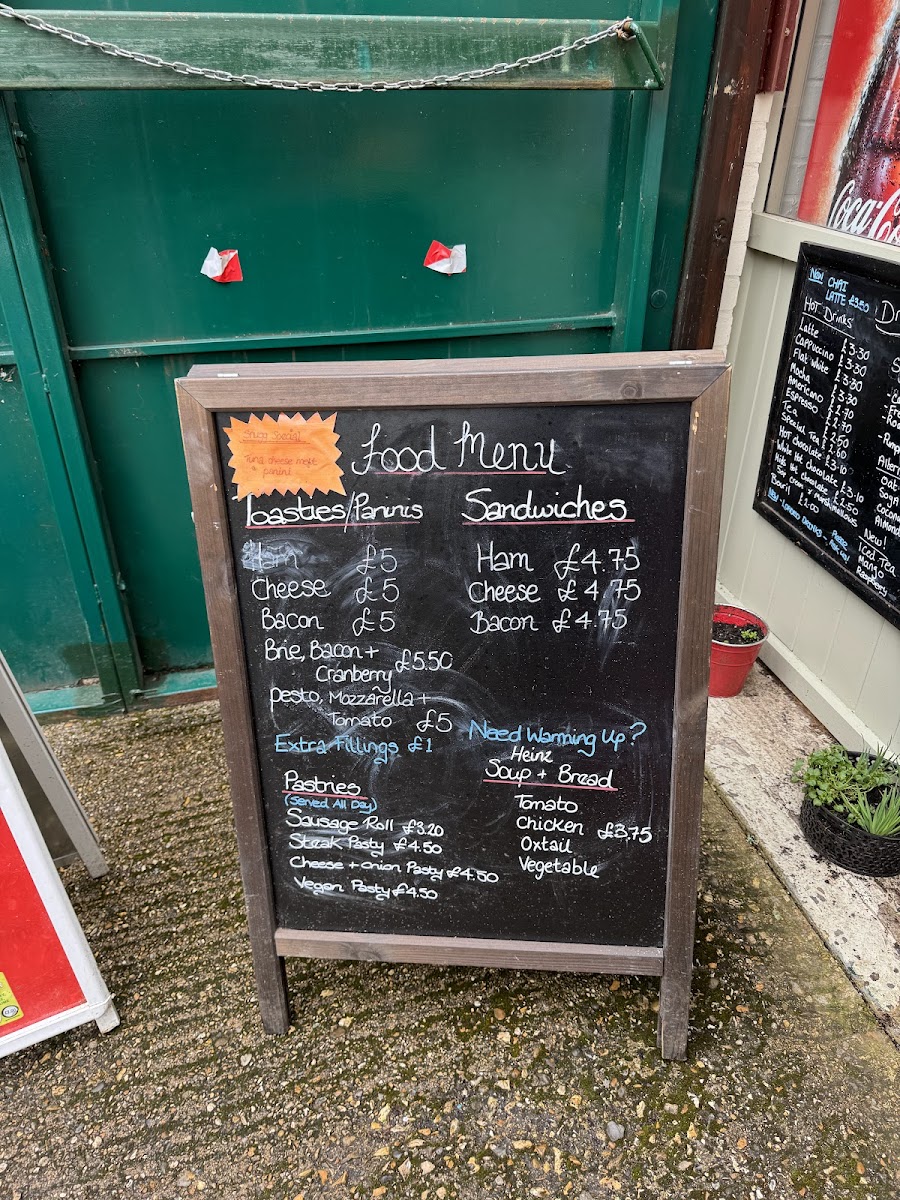 Food Menu
Tuna cheese melt
panini
Toasties/Paninis
Ham £5
Cheese £5
Bacon £5
Brie, Bacon +
Cranberry £5.50
Pesto, Mozzarella +
Tomato £5
Extra Fillings £1
Pastries
(Served All Day)
Sausage Roll £3.20
Steak Pasty £4.50
Cheese + onion Pasty £4.50
Vegan Pasty £4.50
Sandwiches
Ham £4.75
Cheese £4.75
Bacon £4.75
Need Warming Up?
Heinz
Soup + Bread
Tomato
Chicken £3.75
Oxtail
Vegetable
Coca-Co
NEW CHAI
LATTE £3.50
Hot Drinks
Latte £3.30
Cappuccino £3.30
Flat white £3.30
Mocha £3.30
Americano £2.70
Espresso £2.70
Tea
Special Tea
Hot chocolate £3.10
White hot chocolate £3.10
Bovril £2.00
New!
Iced Tea
Mango
Raspberry